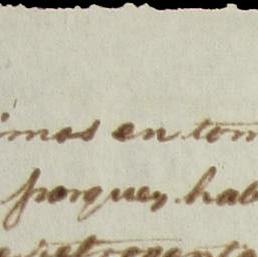 imos en tom
porque, hab